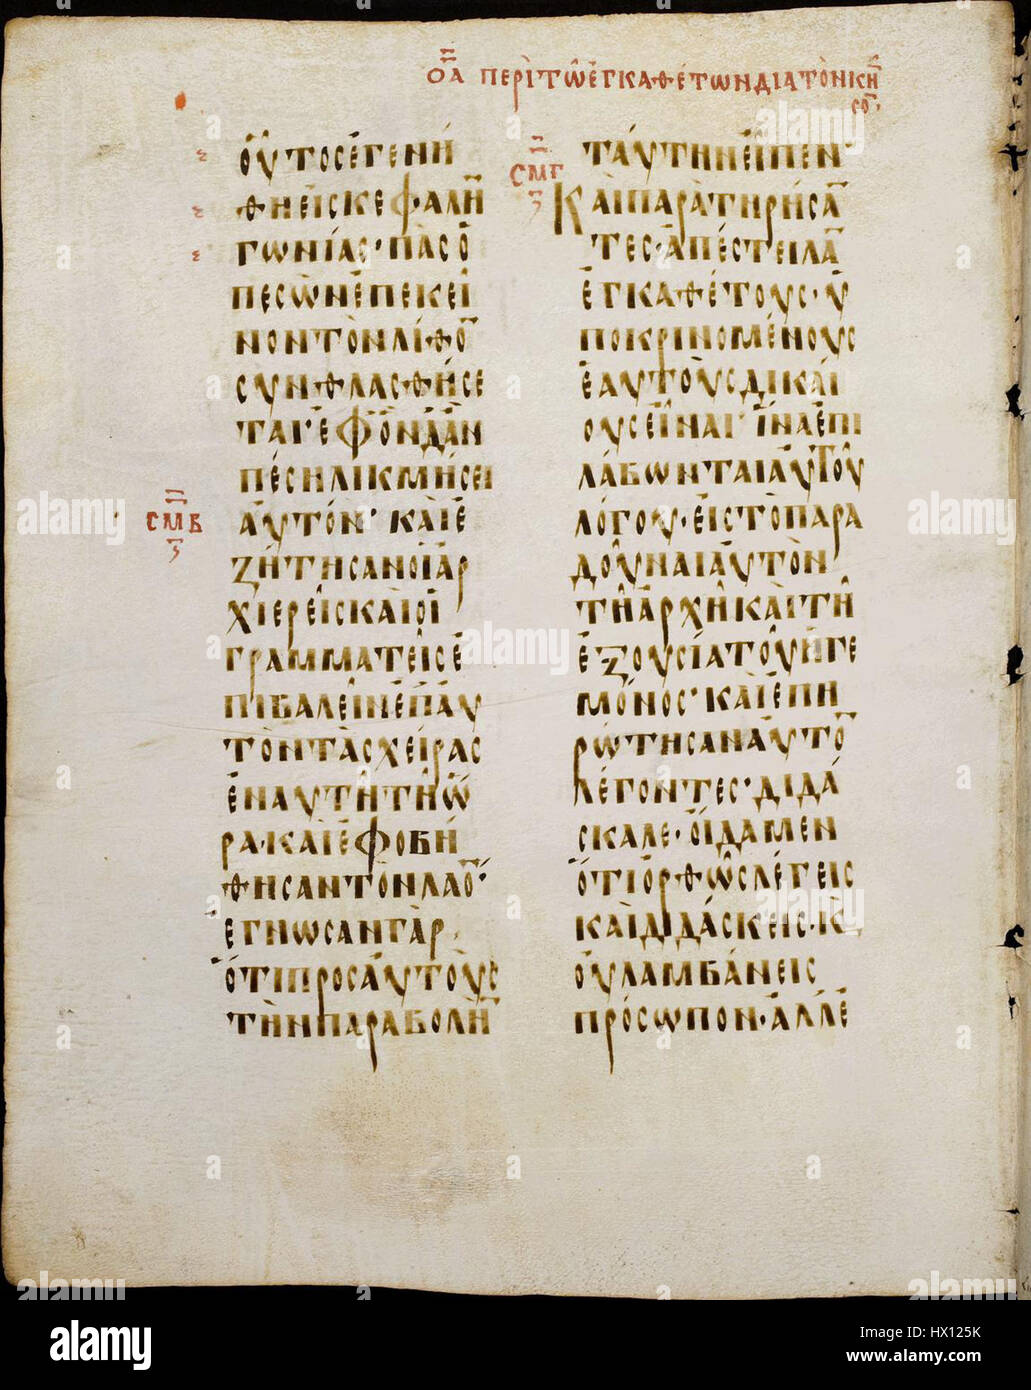 ΟΑ ΠΕΡῚΤΩ̅ΕΓΚΑΘΕΤΩΝΔΙΑΤῸΝΚΗ̅
CΟ̅·
ΟΥΤΟCΕΓΕΝΗ
ΘΗΕΙCΚΕΦΑΛΗ̅
ΓΩΝΙΑC·ΠΑCΟ
ΠΕCΩΝΕΠΕΚΕΙ
ΝΟΝΤΟΝΛΙΘΟ̅
CΥΝΘΛΑCΘΗCΕ
ΤΑΙ·ΕΦΟΝΔΑΝ
ΠΕCΗΛΙΚΜΗCΕΙ
CΜΒ
Ζ
ΑΥΤΟΝ· ΚΑΙΕ
ΖΗΤΗCΑΝΟΙΑΡ
ΧΙΕΡΕΙCΚΑΙΟΙ
ΓΡΑΜΜΑΤΕΙCΕ
ΠΙΒΑΛΕΙΝΕΠΑΥ
ΤΟΝΤΑCΧΕΙΡΑC
ΕΝΑΥΤΗΤΗΩ
ΡΑ·ΚΑΙΕΦΟΒΗ
ΘΗCΑΝΤΟΝΛΑΟ̅·
ΕΓΝΩCΑΝΓΑΡ
ΟΤΙΠΡΟCΑΥΤΟΥC
ΤΗΝΠΑΡΑΒΟΛΗ̅
ΤΑΥΤΗΝΕΙΠΕΝ·
CΜΓ
Ζ
ΚΑΙΠΑΡΑΤΗΡΗCΑ̅
ΤΕC·ΑΠΕCΤΕΙΛΑ̅
ΕΓΚΑΘΕΤΟΥC·Υ
ΠΟΚΡΙΝΟΜΕΝΟΥC
ΕΑΥΤΟΥCΔΙΚΑΙ
ΟΥCΕΙΝΑΙ·ΙΝΑΕΠΙ
ΛΑΒΩΝΤΑΙΑΥΤΟΥ
ΛΟΓΟΥ·ΕΙCΤΟΠΑΡΑ
ΔΟΥΝΑΙΑΥΤΟΝ
ΤΗΑΡΧΗΚΑΙΤΗ
ΕΞΟΥCΙΑΤΟΥΗΓΕ
ΜΟΝΟC·ΚΑΙΕΠΗ
ΡΩΤΗCΑΝΑΥΤΟ̅
ΛΕΓΟΝΤΕC·ΔΙΔΑ
CΚΑΛΕ·ΟΙΔΑΜΕΝ
ΟΤΙΟΡΘΩCΛΕΓΕΙC
ΚΑΙΔΙΔΑCΚΕΙC·Κ,
ΟΥΛΑΜΒΑΝΕΙC
ΠΡΟCΩΠΟΝ·ΑΛΛΕ
alamy
HX125K
www.alamy.com